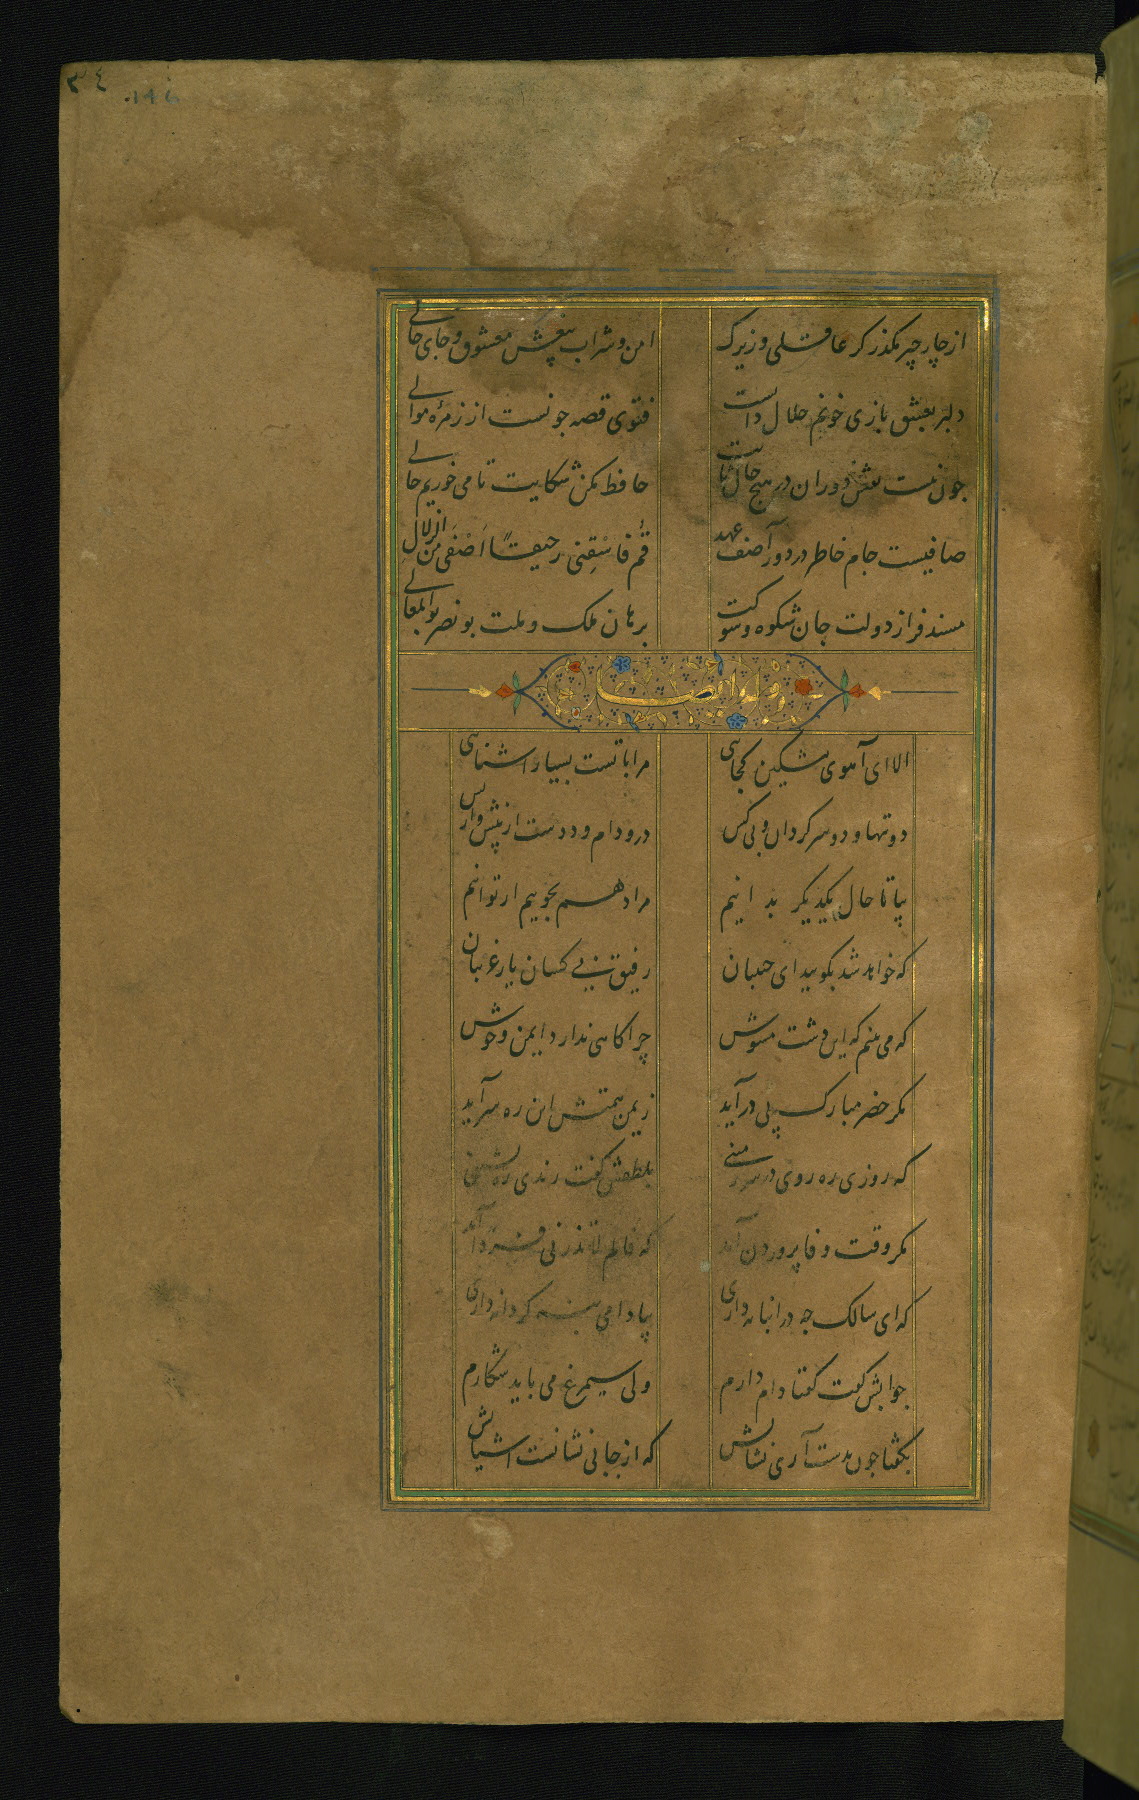 ۳۴
از چار چیز مگذر گر عاقلی و زیرک
امن و شراب بیغش معشوق و جای خالی
دلبر بعشق بازی خونم حلال دانست
فتوی قصه چونست از زمره موالی
چون نیست نقش دوران در هیچ حال ثابت
حافظ مکن شکایت تا می خوریم حالی
صافیست جام خاطر در دور آصف عهد
قُم فَاسْقِنی رحیقًا اَصْفَی مِن الزلال
مسند فراز دولت جان شکوه و شوکت
برهان ملک و ملت بونصر بوالمعالی
وله ایضا
الا ای آهوی مشکین کجایی
مرا با تست بسیار آشنایی
دو تنها و دو سرگردان و بی کس
درو دام و ددست از پیش و از پس
بیا تا حال یکدیگر بدانیم
مراد هم بجوییم ار توانیم
که خواهد شد بگویید ای حبیبان
رفیق بی کسان یار غریبان
که می بینم که این دشت مشوش
چراگاهی ندارد ایمن و خوش
مگر خضر مبارک پی درآید
ز یمن همتش این ره سرآید
که روزی ره روی در سرزمینی
بلطفش گفت رندی ره نشینی
مگر وقت وفا پروردن آمد
که فالم لا تذرنی فردا آمد
که ای سالک چه در انبانه داری
بیا دامی بنه گر دانه داری
جوابش گفت گفتا دام دارم
ولی سیمرغ می باید شکارم
بگفتا چون بدست آری نشانش
که از جانی نشانست آشیانش